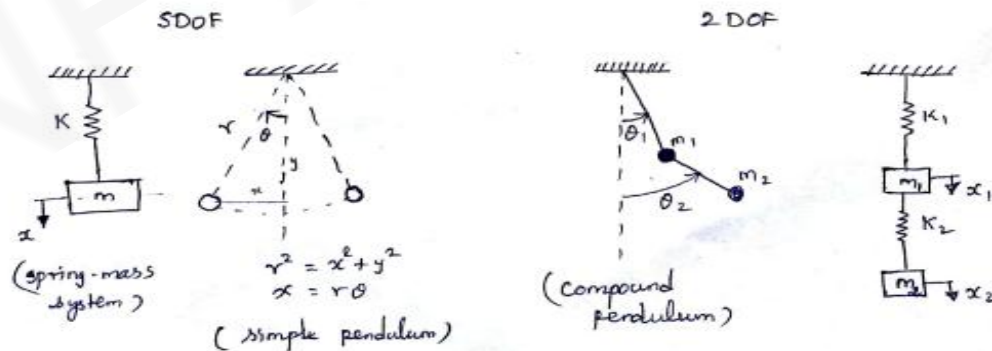 SDOF
K
m
x
(spring-mass
system)
r
θ
y
x
r² = x² + y²
x = rθ
(simple pendulum)
2 DOF
θ₁
m₁
m₂
θ₂
(compound
pendulum)
K₁
m₁
x₁
K₂
m₂
x₂